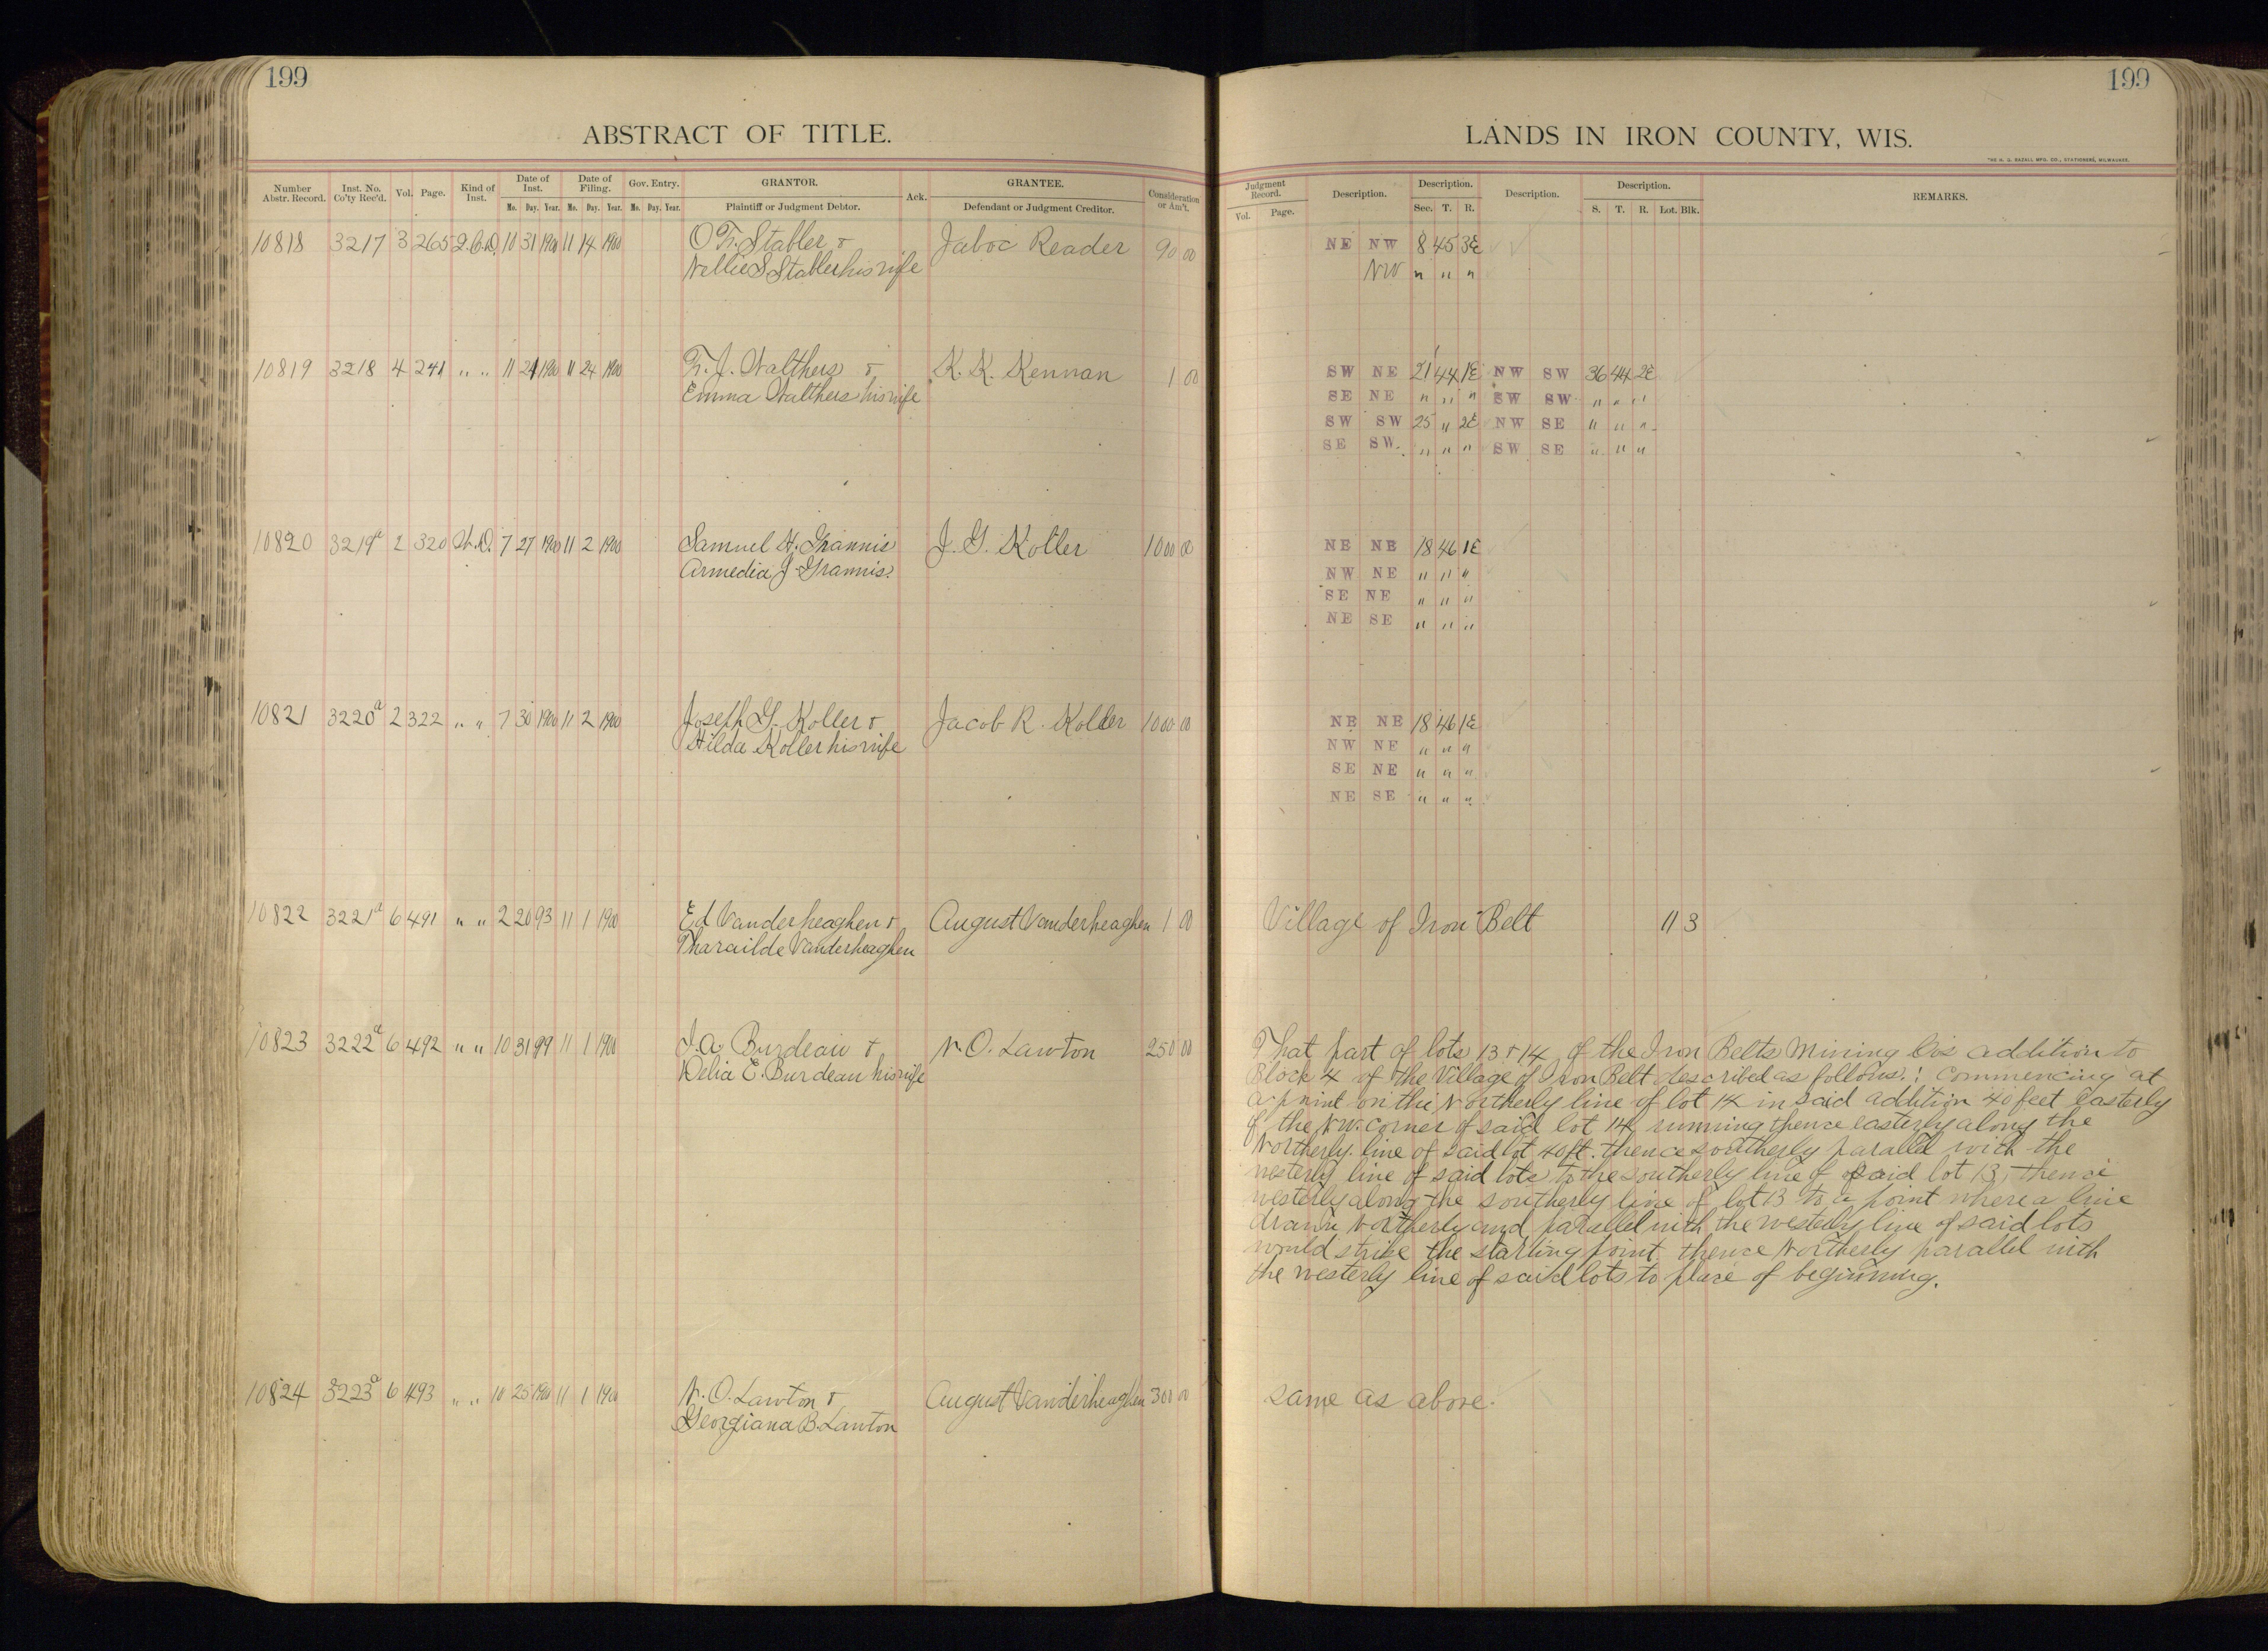 199
199
ABSTRACT OF TITLE.
LANDS IN IRON COUNTY, WIS.
THE H. G. RAZALL MFG. CO., STATIONERS, MILWAUKEE.
Number Abstr. Record. Inst. No. Co'ty Rec'd. Vol. Page. Kind of Inst. Date of Inst. Date of Filing. Gov. Entry. GRANTOR. Ack. GRANTEE. Consideration or Am't.
Mo. Day. Year. Mo. Day. Year. Mo. Day. Year. Plaintiff or Judgment Debtor. Defendant or Judgment Creditor.
Judgment Record. Description. Description. Description. Description. REMARKS.
Vol. Page. Sec. T. R. S. T. R. Lot. Blk.
10818 3217 3 265 Q.C.D. 10 31 1900 11 14 1900 O.F. Stabler & Jaboc Reader 90 00 NE NW 8 45 3E
Nellie S Stabler his wife NW " " "
10819 3218 4 241 " " 11 21 1900 11 24 1900 F.J. Walthers & K. K. Kennan 1 00 SW NE 21 44 1E NW SW 36 44 2E
Emma Walthers his wife SE NE " " " SW SW " " "
SW SW 25 " 2E NW SE " " "
SE SW " " " SW SE " " "
10820 3219a 2 320 W.D. 7 27 1900 11 2 1900 Samuel H. Grannis J. G. Koller 1000 00 NE NE 18 46 1E
Armedia J Grannis. NW NE " " "
SE NE " " "
NE SE " " "
10821 3220a 2 322 " " 7 30 1900 11 2 1900 Joseph G. Koller & Jacob R. Koller 1000 00 NE NE 18 46 1E
Hilda Koller his wife NW NE " " "
SE NE " " "
NE SE " " "
10822 3221a 6 491 " " 2 20 93 11 1 1900 Ed Vanderheaghen & August Vanderheaghen 1 00 Village of Iron Belt 11 3
Tharailde Vanderheaghen
10823 3222a 6 492 " " 10 31 99 11 1 1900 J.A. Burdeau & N. O. Lawton 250 00 That part of lots 13 & 14 of the Iron Belts Mining Co's addition to
Delia E. Burdeau his wife Block 4 of the Village of Iron Belt described as follows: commencing at
a point on the Northerly line of lot 14 in said addition 40 feet Easterly
of the NW. corner of said lot 14, running thence easterly along the
Northerly line of said lot 40 ft. thence southerly parallel with the
westerly line of said lots to the southerly line of said lot 13, thence
westerly along the southerly line of lot 13 to a point where a line
drawn Northerly and parallel with the westerly line of said lots
would strike the starting point, thence Northerly parallel with
the westerly line of said lots to place of beginning.
10824 3223a 6 493 " " 10 25 1900 11 1 1900 N. O. Lawton & August Vanderheaghen 300 00 same as above.
Georgiana B. Lawton